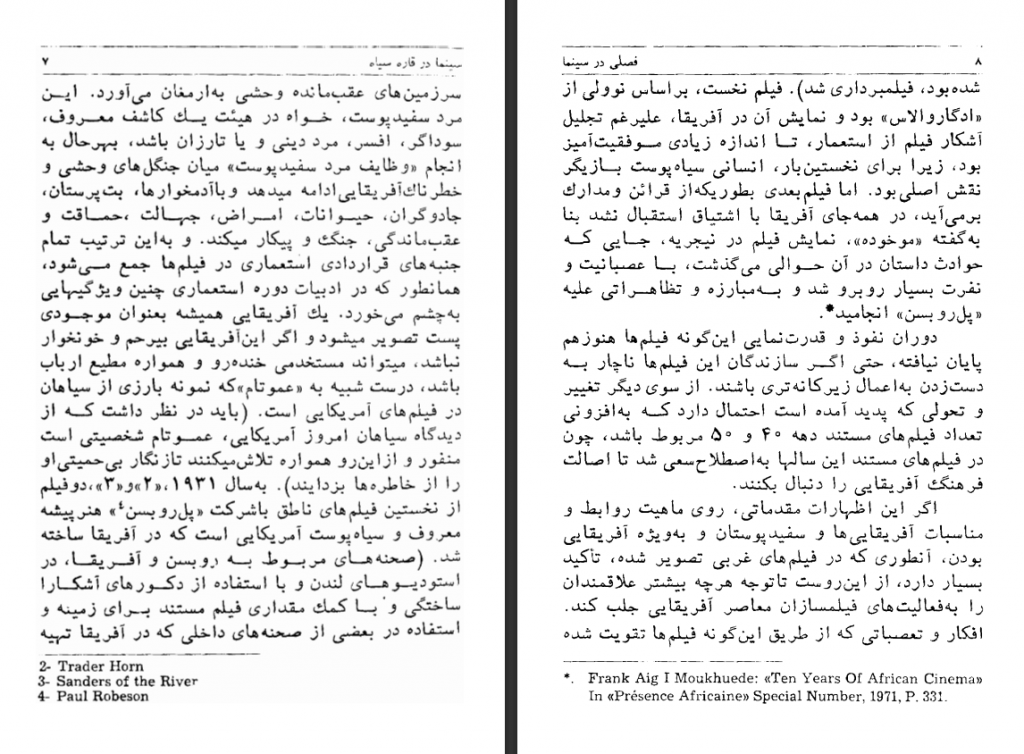 سینما در قاره سیاه ۷
سرزمین‌های عقب‌مانده وحشی به‌ارمغان می‌آورد. این
مرد سفیدپوست، خواه در هیئت یك كاشف معروف،
سوداگر، افسر، مرد دینی و یا تارزان باشد، بهرحال به
انجام «وظایف مرد سفیدپوست» میان جنگل‌های وحشی و
خطرناك‌آفریقایی‌ادامه میدهد وباآدمخوارها، بت‌پرستان،
جادوگران، حیوانات، امراض، جهالت ،حماقت و
عقب‌ماندگی، جنگ و پیكار میكند. و به‌این ترتیب تمام
جنبه‌های قراردادی استعماری در فیلم‌ها جمع می‌شود،
همانطور كه در ادبیات دوره استعماری چنین ویژگیهایی
به‌چشم می‌خورد. یك آفریقایی همیشه بعنوان موجودی
پست تصویر میشود و اگر این‌آفریقایی بیرحم و خونخوار
نباشد، میتواند مستخدمی خنده‌رو و همواره مطیع ارباب
باشد، درست شبیه به «عموتام»كه نمونه بارزی از سیاهان
در فیلم‌های آمریكایی است. (باید در نظر داشت كه از
دیدگاه سیاهان امروز آمریكایی، عموتام شخصیتی است
منفور و ازاین‌رو همواره تلاش‌میكنند تازنگار بی‌حمیتی‌او
را از خاطره‌ها بزدایند). به‌سال ۱۹۳۱،«۲»و«۳»،دوفیلم
از نخستین فیلم‌های ناطق باشركت «پل‌روبسن۴» هنرپیشه
معروف و سیاه‌پوست آمریكایی است كه در آفریقا ساخته
شد. (صحنه‌های مربوط به روبسن و آفریقا، در
استودیوهای لندن و با استفاده از دكورهای آشكارا
ساختگی و با كمك مقداری فیلم مستند برای زمینه و
استفاده در بعضی از صحنه‌های داخلی كه در آفریقا تهیه
2- Trader Horn
3- Sanders of the River
4- Paul Robeson
۸ فصلی در سینما
شده‌بود، فیلمبرداری شد). فیلم نخست، براساس نوولی از
«ادگاروالاس» بود و نمایش آن در آفریقا، علیرغم تجلیل
آشكار فیلم از استعمار، تا اندازه زیادی موفقیت‌آمیز
بود، زیرا برای نخستین‌بار، انسانی سیاه‌پوست بازیگر
نقش اصلی‌بود. اما فیلم‌بعدی بطوریكه‌از قرائن ومدارك
برمی‌آید، در همه‌جای آفریقا با اشتیاق استقبال نشد بنا
به‌گفته «موخوده»، نمایش فیلم در نیجریه، جایی كه
حوادث داستان در آن حوالی می‌گذشت، با عصبانیت و
نفرت بسیار روبرو شد و به‌مبارزه و تظاهراتی علیه
«پل‌روبسن» انجامید*.
دوران نفوذ و قدرت‌نمایی این‌گونه فیلم‌ها هنوزهم
پایان نیافته، حتی اگر سازندگان این فیلم‌ها ناچار به
دست‌زدن به‌اعمال زیركانه‌تری باشند. از سوی دیگر تغییر
و تحولی كه پدید آمده است احتمال دارد كه به‌افزونی
تعداد فیلم‌های مستند دهه ۴۰ و ۵۰ مربوط باشد، چون
در فیلم‌های مستند این سالها به‌اصطلاح‌سعی شد تا اصالت
فرهنگ آفریقایی را دنبال بكنند.
اگر این اظهارات مقدماتی، روی ماهیت روابط و
مناسبات آفریقایی‌ها و سفیدپوستان و به‌ویژه آفریقایی
بودن، آنطوری كه در فیلم‌های غربی تصویر شده، تأكید
بسیار دارد، از این‌روست تاتوجه هرچه بیشتر علاقمندان
را به‌فعالیت‌های فیلمسازان معاصر آفریقایی جلب كند.
افكار و تعصباتی كه از طریق این‌گونه فیلم‌ها تقویت شده
*. Frank Aig I Moukhuede: «Ten Years Of African Cinema»
In «Présence Africaine» Special Number, 1971, P. 331.